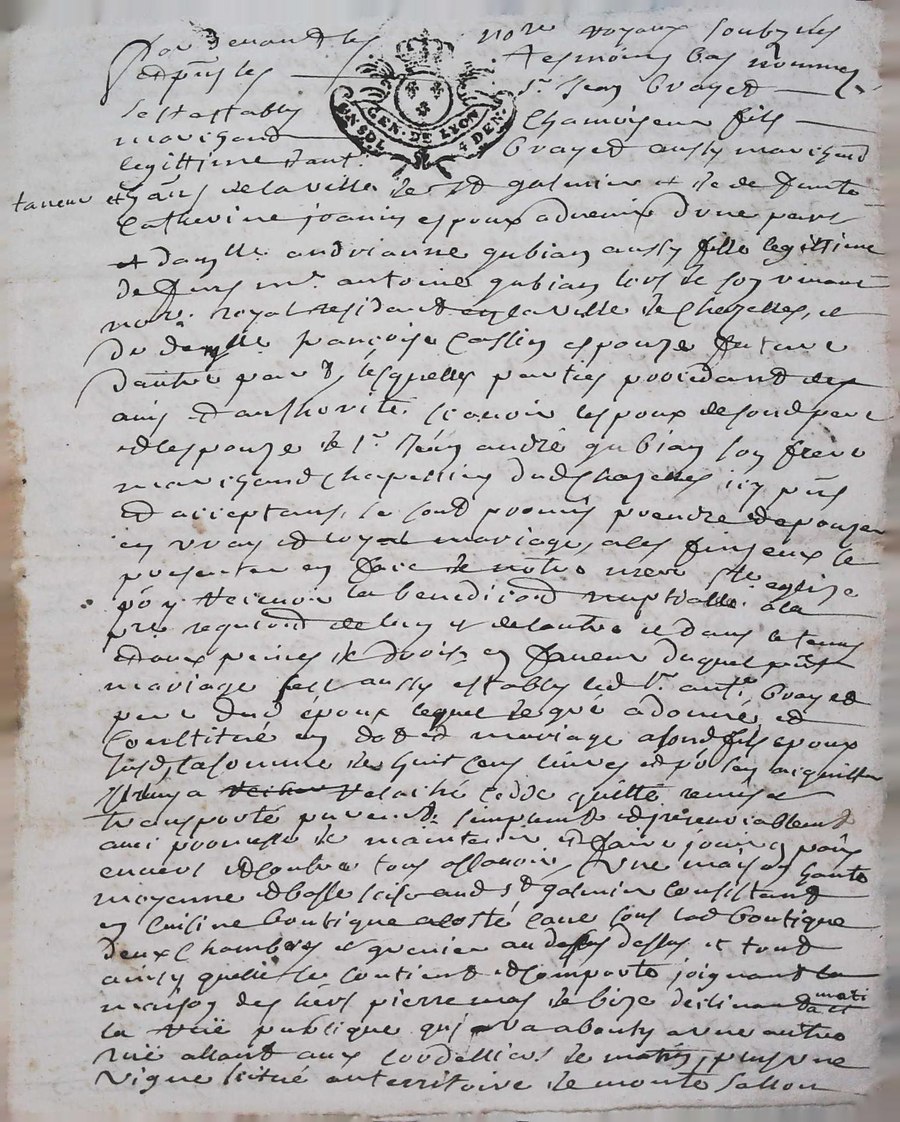 Par devant les nore royaux soubznés
et pnts les tesmoins bas nommes
sest estably sr Jean Brayet
marchand chamoiseur fils
legittime dant. Brayet aussy marchand
tanneur et
de la ville de st galmier et de
Catherine joanin espoux advenir dune part
et dlle andrianne gubian aussy fille legittime
de me antoine gubian lors de son vivant
nore royal residant en la ville de Chazelles, et
de delle françoise espouze future
dautre part, lesquelles parties procedant de
avis et authorité scavoir lespoux de sond pere
et lespouze de sr Jean andré gubian son frere
marchand chapellier dud Chazelles icy pnts
et acceptans, se sont promis prendre et espouzer
en vray et loyal mariage, a ces fins eux se
presenter en face de notre mere ste eglise
po y recevoir la benediction nuptialle a la
pre requion de lun et de lautre et dans le temps
et aux peines de droit, en faveur duquel pnt
mariage sest aussy estably led sr ant. Brayet
pere dud époux lequel de gre a donné et
constitué en dot et mariage a sond fils epoux
la somme de huit cens livres et po sen aquitter
luy a relaché cedde quitté remis et
transporté purement. simplement et irrevocablement
avec promesse de maintenir et faire jouir
envers et contre tous assavoir, Une maison haute
moyenne et basse scise aud st galmier consistant
en cuisine boutique a costé cave sous lad boutique
deux chambres et grenier au dessus et tout
ainsy quelle se contient et comporte joignant la
maison des hers pierre mas de bize de matin
la ruë publique qui va aboutir a une autre
ruë allant aux cordelliers de matin, plus une
vigne situé au territoire de
GEN. DE LYON
4 DEN.